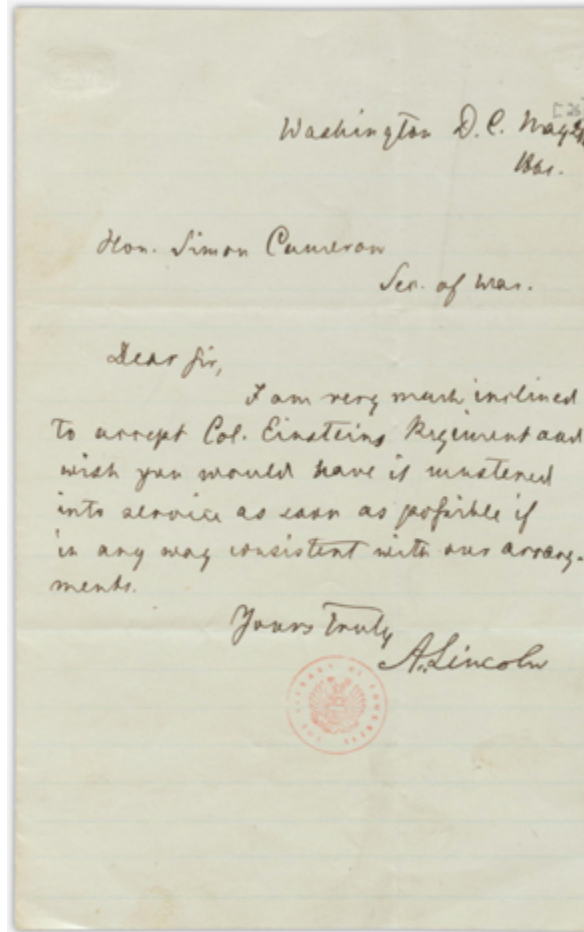 Washington D.C. May
1861.
Hon. Simon Cameron
Sec. of War.
Dear Sir,
I am very much inclined
to accept Col. Einsteins Regiment and
wish you would have it mustened
into service as soon as possible if
in any way consistent with our arrang-
ments.
Yours Truly
A. Lincoln
LIBRARY OF CONGRESS